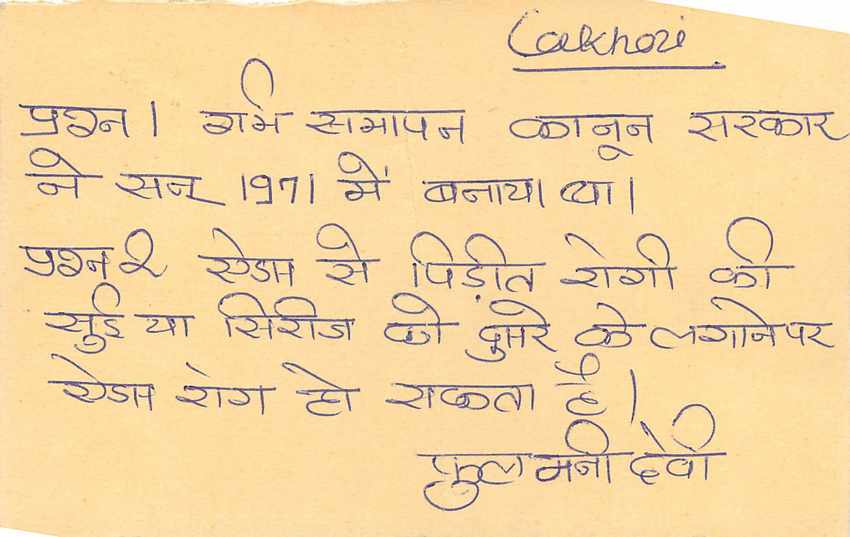 Lakhori
प्रश्न 1 गर्भ समापन कानून सरकार
ने सन् 1971 में बनाया था।
प्रश्न 2 एडस से पिड़ीत रोगी की
सुई या सिरीज को दुसरे के लगाने पर
एडस रोग हो सकता है।
फुलमनी देवी